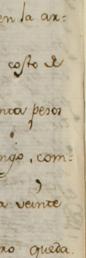 en la ar-
costo de
nta pesos
ngo, com-
a veinte
ro queda.